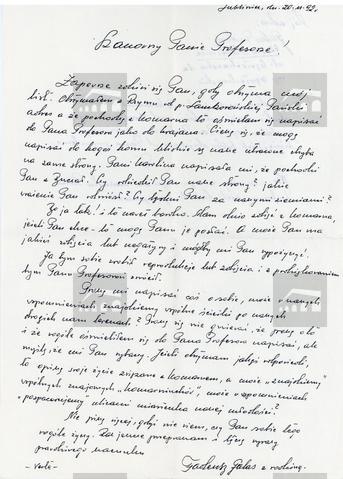 Lubliniec, dn. 20.11.92r.
Szanowny Panie Profesorze!
Zapewne zdziwi się Pan, gdy otrzyma mój
list. Otrzymałem z Rzymu od p. Lanckorońskiej Pański
adres a że pochodzę z Komarna to ośmielam się napisać
do Pana Profesora jako do krajana. Cieszę się, że mogę
napisać do kogoś komu bliskie są nasze utracone chyba
na zawsze strony. Pani Karolina napisała mi, że pochodzi
Pan z Czy odwiedził Pan nasze strony? Jakie
wrażenie Pan odniósł? Czy tęskni Pan za naszymi ziemiami?
Ja tak! i to nawet bardzo. Mam dużo zdjęć z Komarna,
jeżeli Pan chce - to mogę Panu je posłać. A może Pan ma
jakieś zdjęcia lub i mógłby mi Pan wypożyczyć.
Ja bym sobie zrobił reprodukcje lub zdjęcia i z podziękowaniem
bym Panu Profesorowi zwrócił.
Proszę mi napisać coś o sobie, może w naszych
wspomnieniach znajdziemy wspólne ścieżki po naszych
drogich nam terenach? Proszę się nie gniewać, że piszę
i że w ogóle ośmieliłem się do Pana Profesora napisać, ale
myślę, że mi Pan wybaczy. Jeżeli otrzymam jakąś odpowiedź,
to opiszę swoje życie związane z Komarnem, a może "znajdziemy"
wspólnych znajomych "komarniaków", może w wspomnieniach
"pospacerujemy" ulicami miasteczka naszej młodości?
Nie piszę więcej, gdyż nie wiem, czy Pan sobie tego
w ogóle życzy. Za jeszcze przepraszam i łączę wyrazy
prawdziwego szacunku
-verte- Tadeusz Gałas z rodziną.